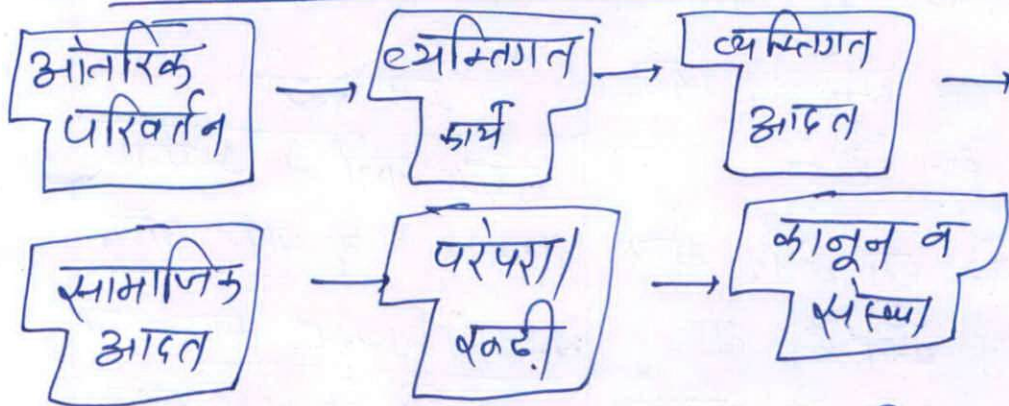 आंतरिक
परिवर्तन
व्यक्तिगत
कार्य
व्यक्तिगत
आदत
सामाजिक
आदत
परंपरा/
रूढ़ी
कानून व
संस्था